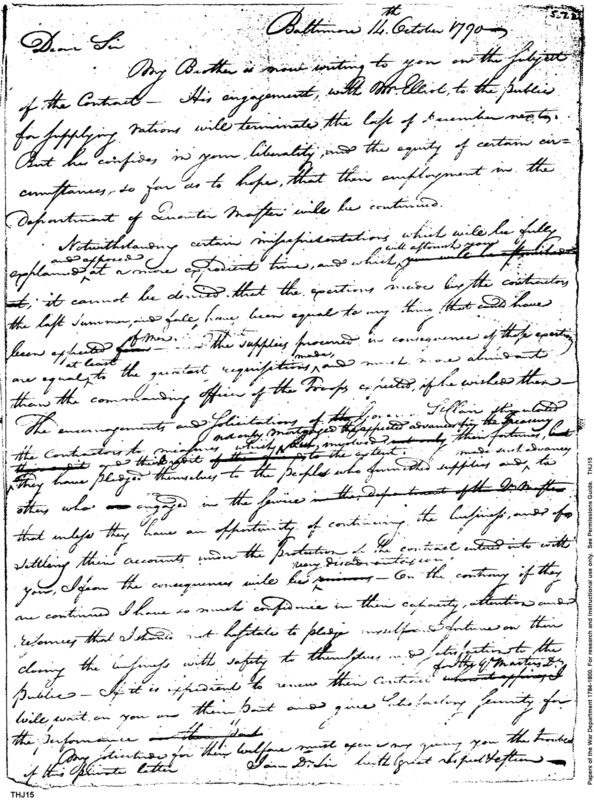 5.72
Baltimore 14th October 1790
Dear Sir
My Brother is now writing to you on the subject
of the Contract — His engagement, with Mr Elliot, to the public
for supplying rations will terminate the last of December next.
But he confides in your liberality, and the equity of certain cir-
cumstances, so far as to hope, that their employment in the
Department of Quarter Master will be continued.
Notwithstanding certain misrepresentations which will be fully
and exposed will astonish you
explained at a more expedient time, and which you will be astonished
at, it cannot be denied that the exertions made by the contractors
the last summer and fall, have been equal to any thing that could have
of men
been expected from — the supplies procured in consequence of those exertions
at least made,
are equal to the greatest requisitions and much more abundant
than the commanding officer of the Troops expected, if he wished them —
The encouragements and solicitations of the stimulated
not only mortgaged the expected advances by the Treasury
the Contractors to measures which have involved not only their fortunes, but
and their credit to the extent. made such advances
they have pledged themselves to the people who furnished supplies and, to
others who engaged in the service in the department of the Qr Master
that unless they have an opportunity of continuing the business, and of
settling their accounts under the protection of the contract entered into with
very disadvantageous
you, I fear the consequences will be ruinous — On the contrary if they
are continued I have so much confidence in their capacity, attention and
resources that I should not hesitate to pledge myself and fortune on their
closing the business with safety to themselves and satisfaction to the
for the Qr Masters D
public — If it is expedient to renew their contract I
will wait on you on their part and give satisfactory security for
the performance on their part
My solicitude for their welfare must excuse my giving you the trouble
of this private letter I am Dr Sir with great respect & esteem —
THJ15
Papers of the War Department 1784-1800. For research and instructional use only. See Permissions Guide. THJ15